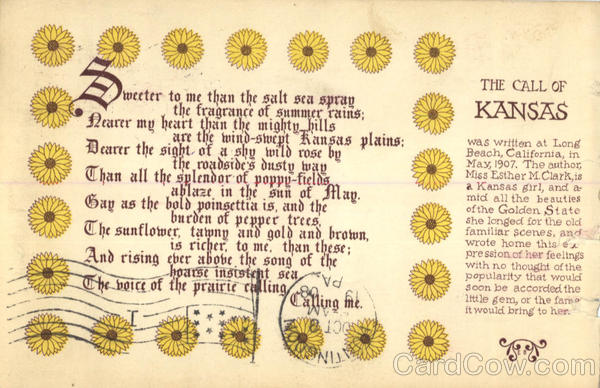 Sweeter to me than the salt sea spray
the fragrance of summer rains;
Nearer my heart than the mighty hills
are the wind-swept Kansas plains;
Dearer the sight of a shy wild rose by
the roadside's dusty way
Than all the splendor of poppy-fields
ablaze in the sun of May.
Gay as the bold poinsettia is, and the
burden of pepper trees,
The sunflower, tawny and gold and brown,
is richer, to me, than these;
And rising ever above the song of the
hoarse insistent sea
The voice of the prairie calling
Calling me.
THE CALL OF
KANSAS
was written at Long
Beach, California, in
May, 1907. The author,
Miss Esther M. Clark, is
a Kansas girl, and a-
mid all the beauties
of the Golden State
she longed for the old
familiar scenes, and
wrote home this ex
pression of her feelings
with no thought of the
popularity that would
soon be accorded the
little gem, or the fame
it would bring to her.
1
PA
OCT
CardCow.com